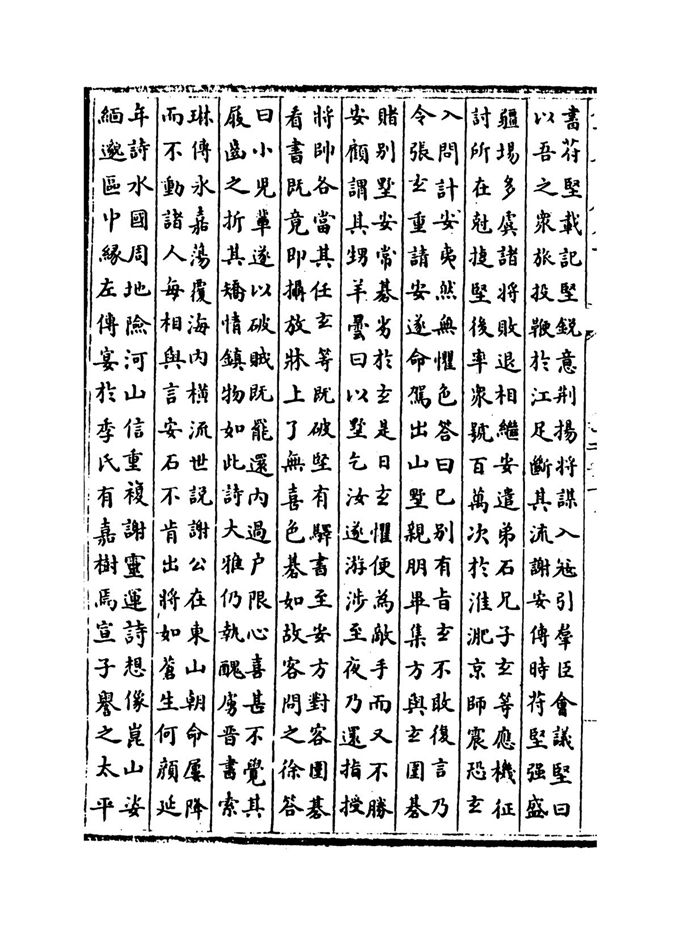 書苻堅載記堅銳意荆揚將謀入冦引羣臣會議堅曰
以吾之衆旅投鞭於江足斷其流謝安傳時苻堅强盛
疆埸多虞諸將敗退相繼安遣弟石兄子玄等應機征
討所在尅捷堅後率衆號百萬次於淮淝京師震恐玄
入問計安夷然無懼色答曰已別有旨玄不敢復言乃
令張玄重請安遂命駕出山墅親朋畢集方與玄圍碁
賭別墅安常碁劣於玄是日玄懼便為敵手而又不勝
安顧謂其甥羊曇曰以墅乞汝遂游涉至夜乃還指授
將帥各當其任玄等既破堅有驛書至安方對客圍碁
看書既竟即攝放牀上了無喜色碁如故客問之徐答
曰小兒輩遂以破賊既罷還内過户限心喜甚不覺其
屐齒之折其矯情鎮物如此詩大雅仍執醜虜晉書索
琳傳永嘉蕩覆海内橫流世説謝公在東山朝命屢降
而不動諸人每相與言安石不肯出將如蒼生何顔延
年詩水國周地險河山信重複謝靈運詩想像崑山姿
緬邈區中縁左傳宴於季氏有嘉樹焉宣子譽之太平